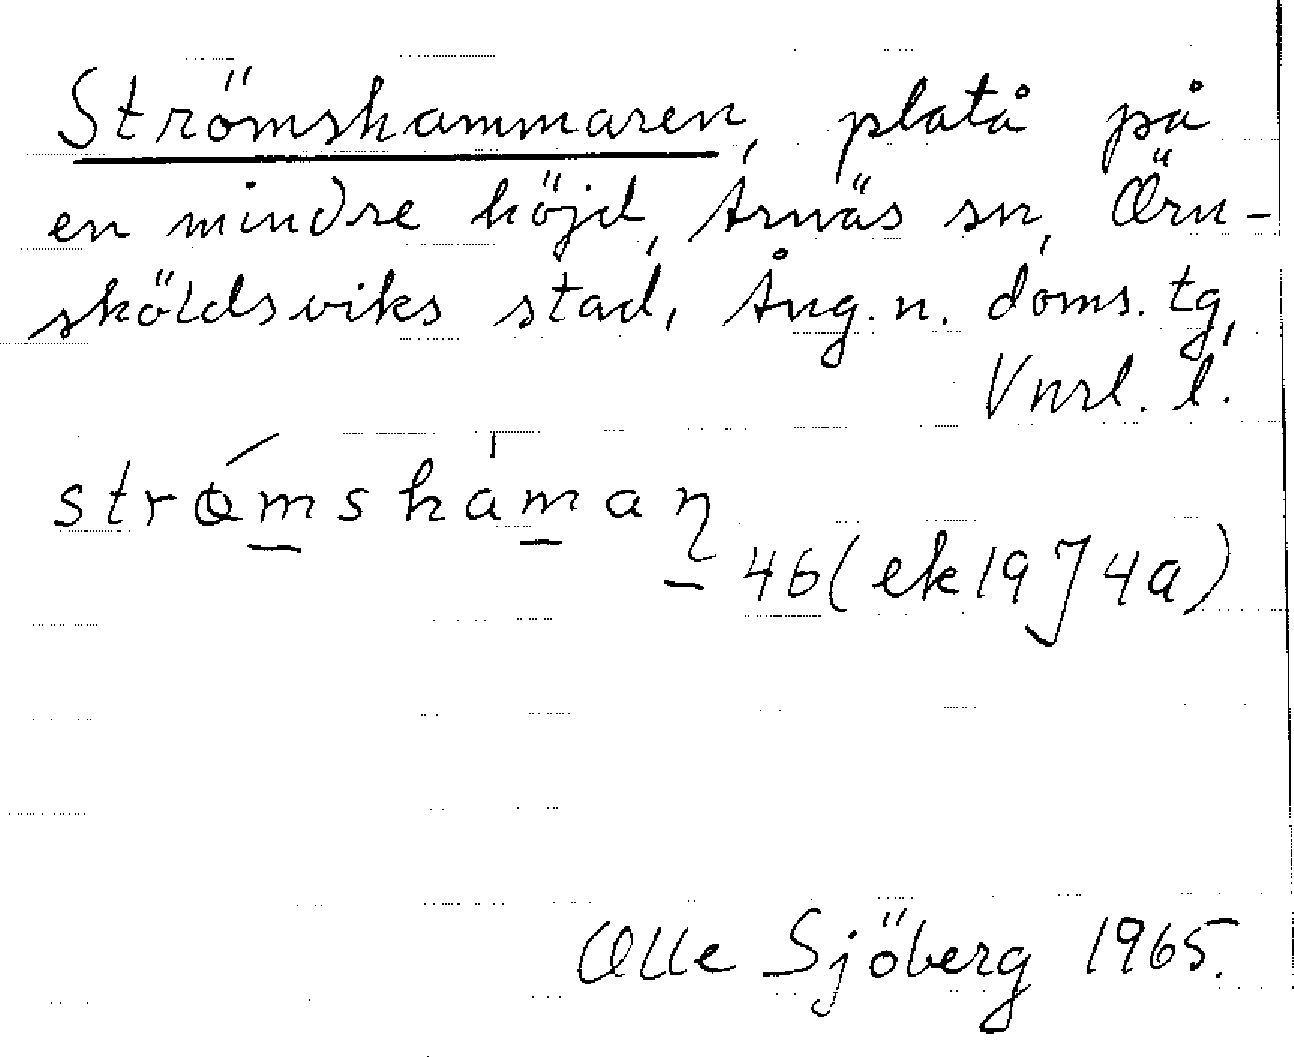 Strömshammaren, platå på
en mindre höjd, Arnäs sn, Örn-
sköldsviks stad, Ång. n. doms. tg,
Vnrl. l.
strǿmshȧmaꞃ 46 (ek 19 J 4a)
Olle Sjöberg 1965.